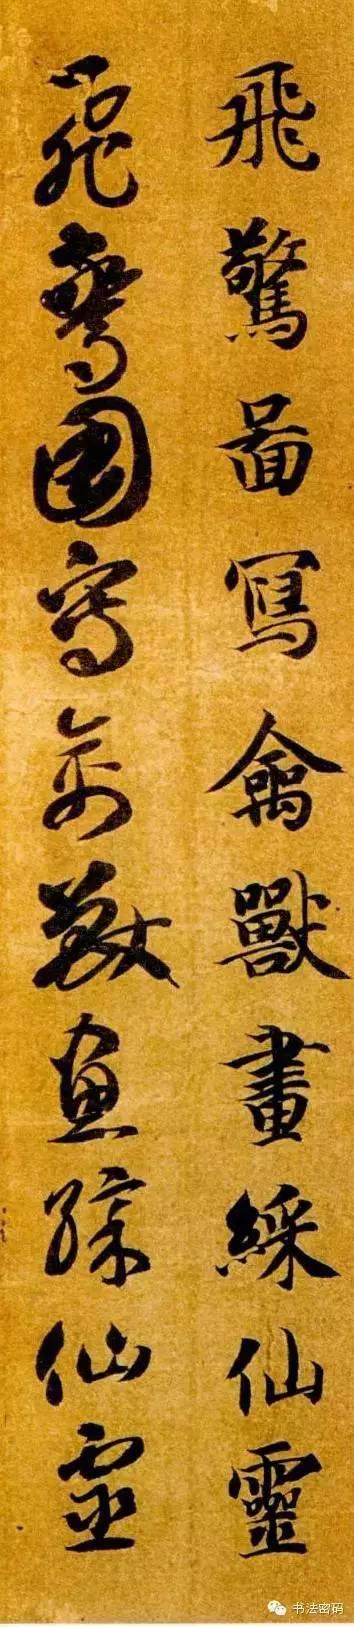 飛驚啚寫禽獸畫綵仙靈
飛驚圖寫禽獸畫綵仙靈
书法密码